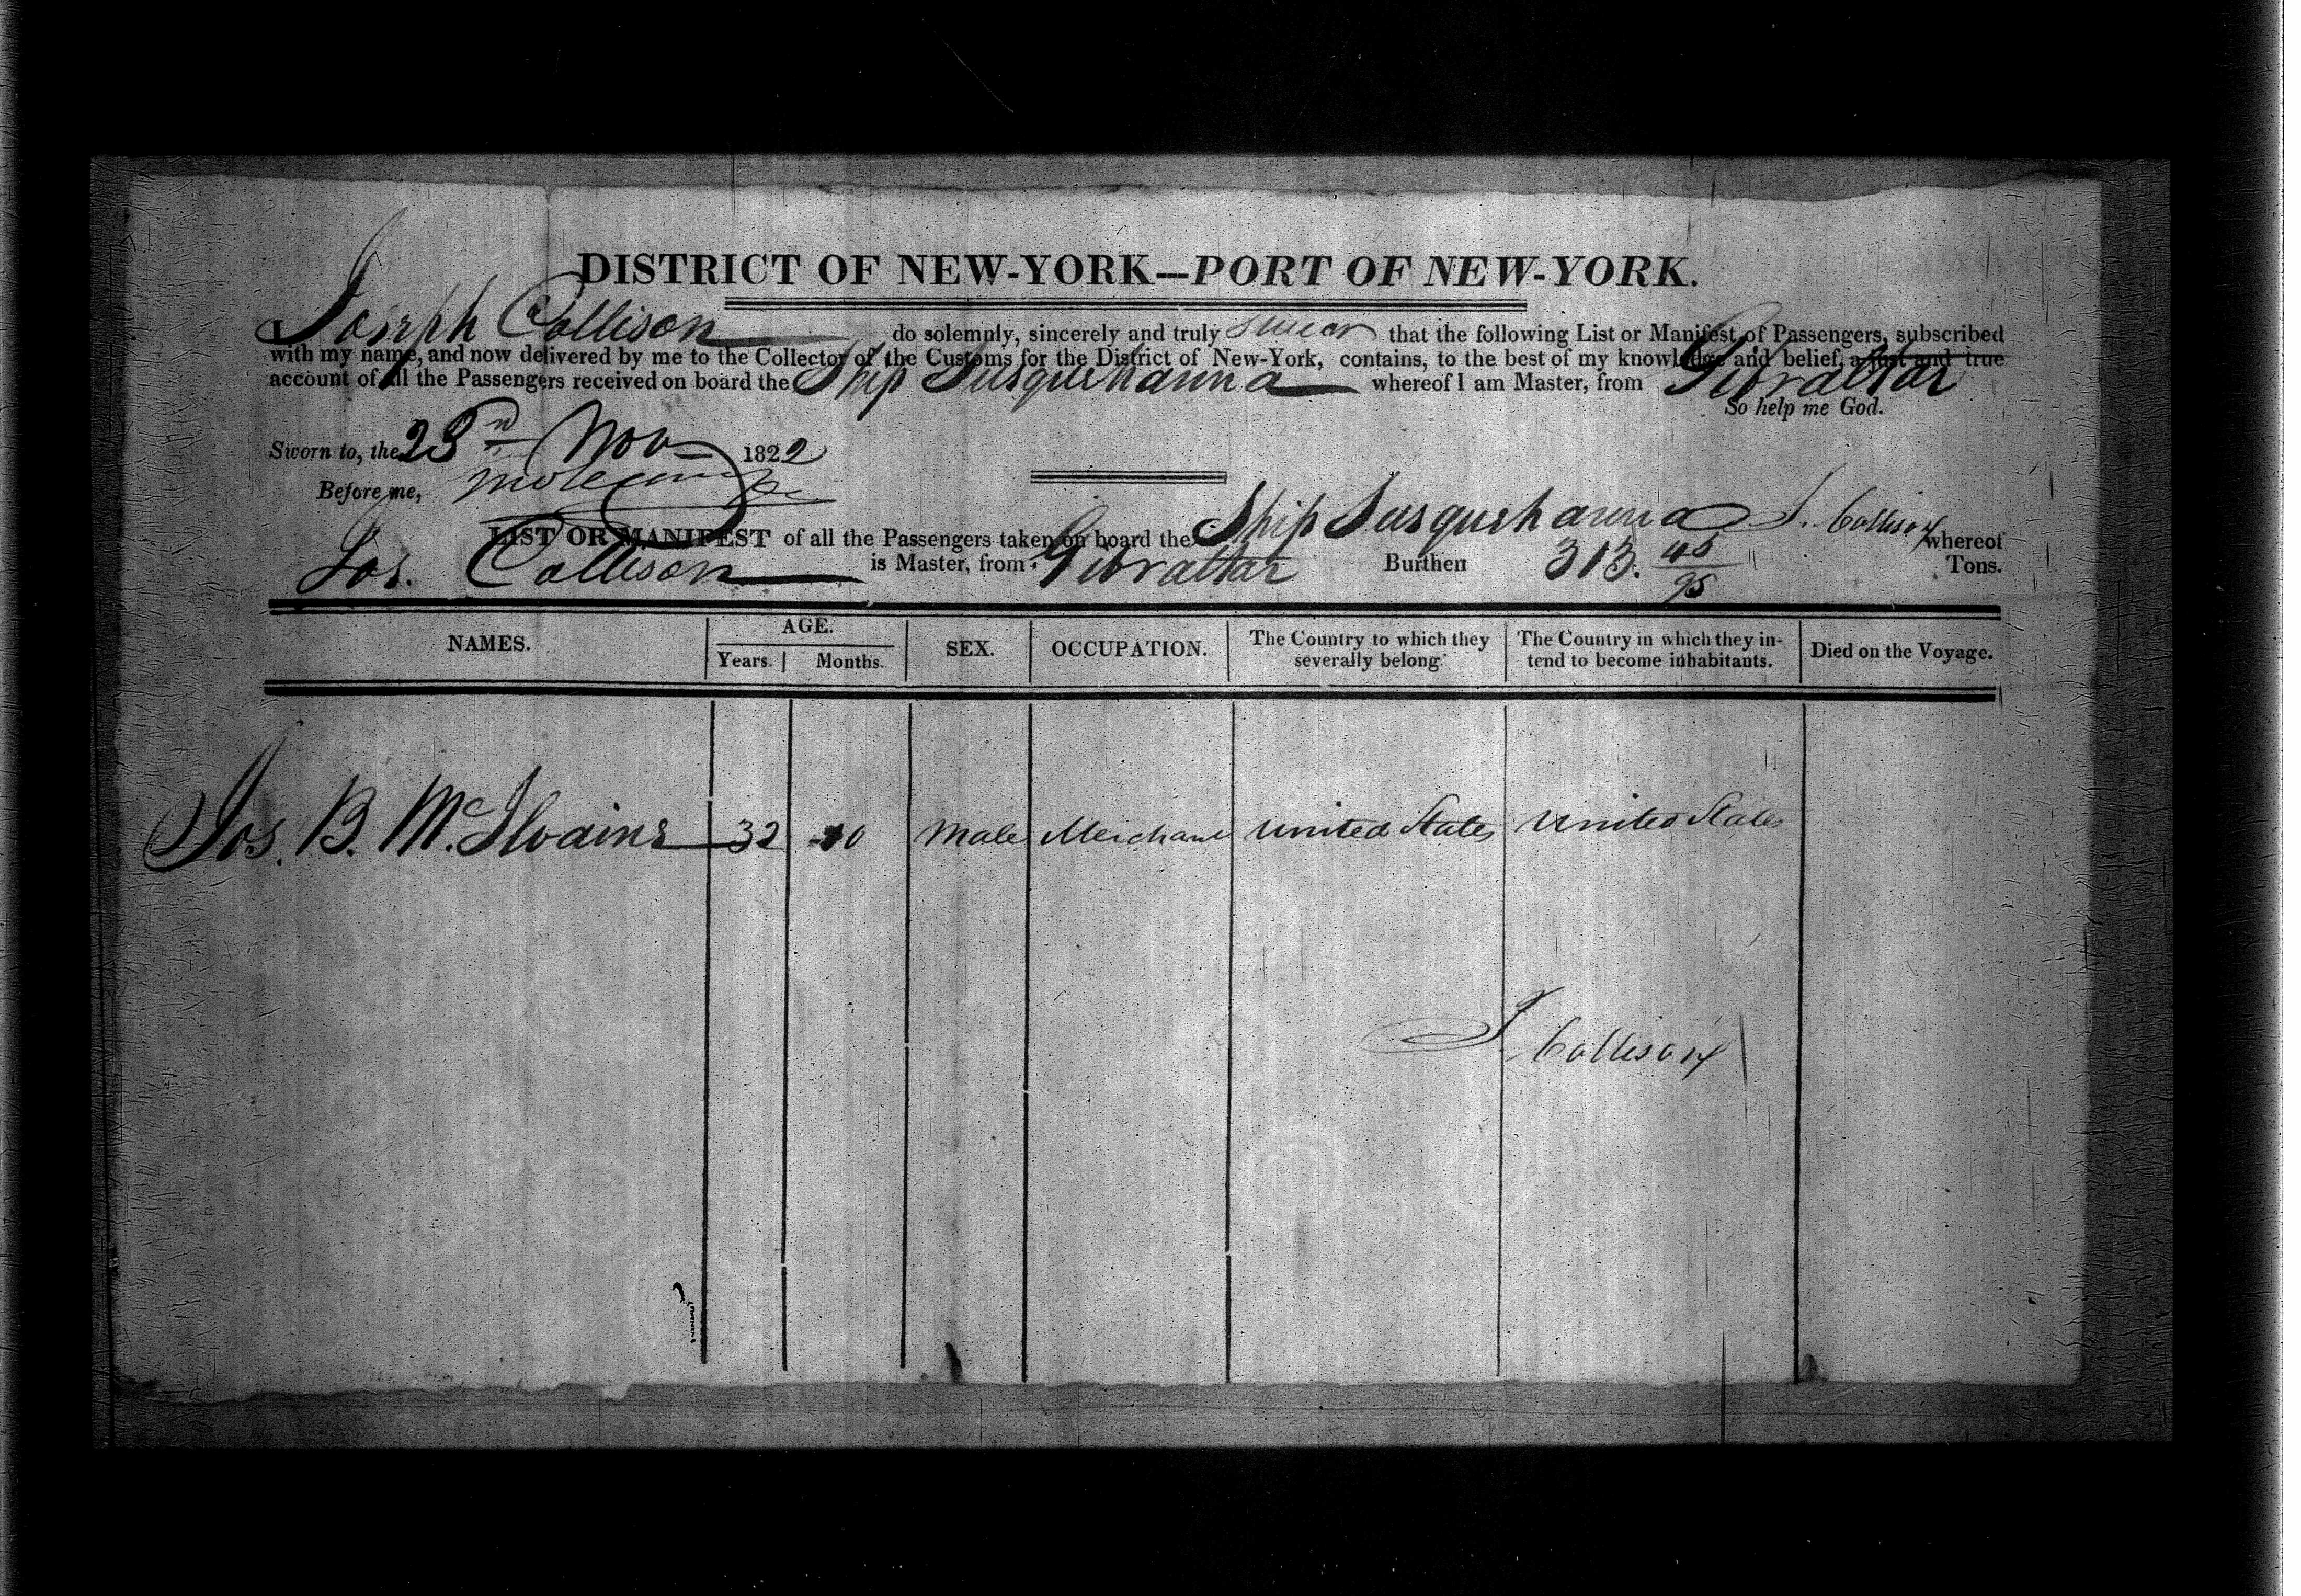 DISTRICT OF NEW-YORK—PORT OF NEW-YORK.
I Joseph Collison do solemnly, sincerely and truly swear that the following List or Manifest of Passengers, subscribed
with my name, and now delivered by me to the Collector of the Customs for the District of New-York, contains, to the best of my knowledge and belief, a just and true
account of all the Passengers received on board the Ship Susquehanna whereof I am Master, from Gibraltar
So help me God.
Sworn to, the 23rd Nov 1822
Before me,
J. Collison
LIST OR MANIFEST of all the Passengers taken on board the Ship Susquehanna whereof
Jos. Collison is Master, from Gibraltar Burthen 313. 45/95 Tons.
NAMES. AGE. SEX. OCCUPATION. The Country to which they severally belong. The Country in which they intend to become inhabitants. Died on the Voyage.
Years. Months.
Jos. B. McIlvaine 32 10 Male Merchant United States United States
J Collison